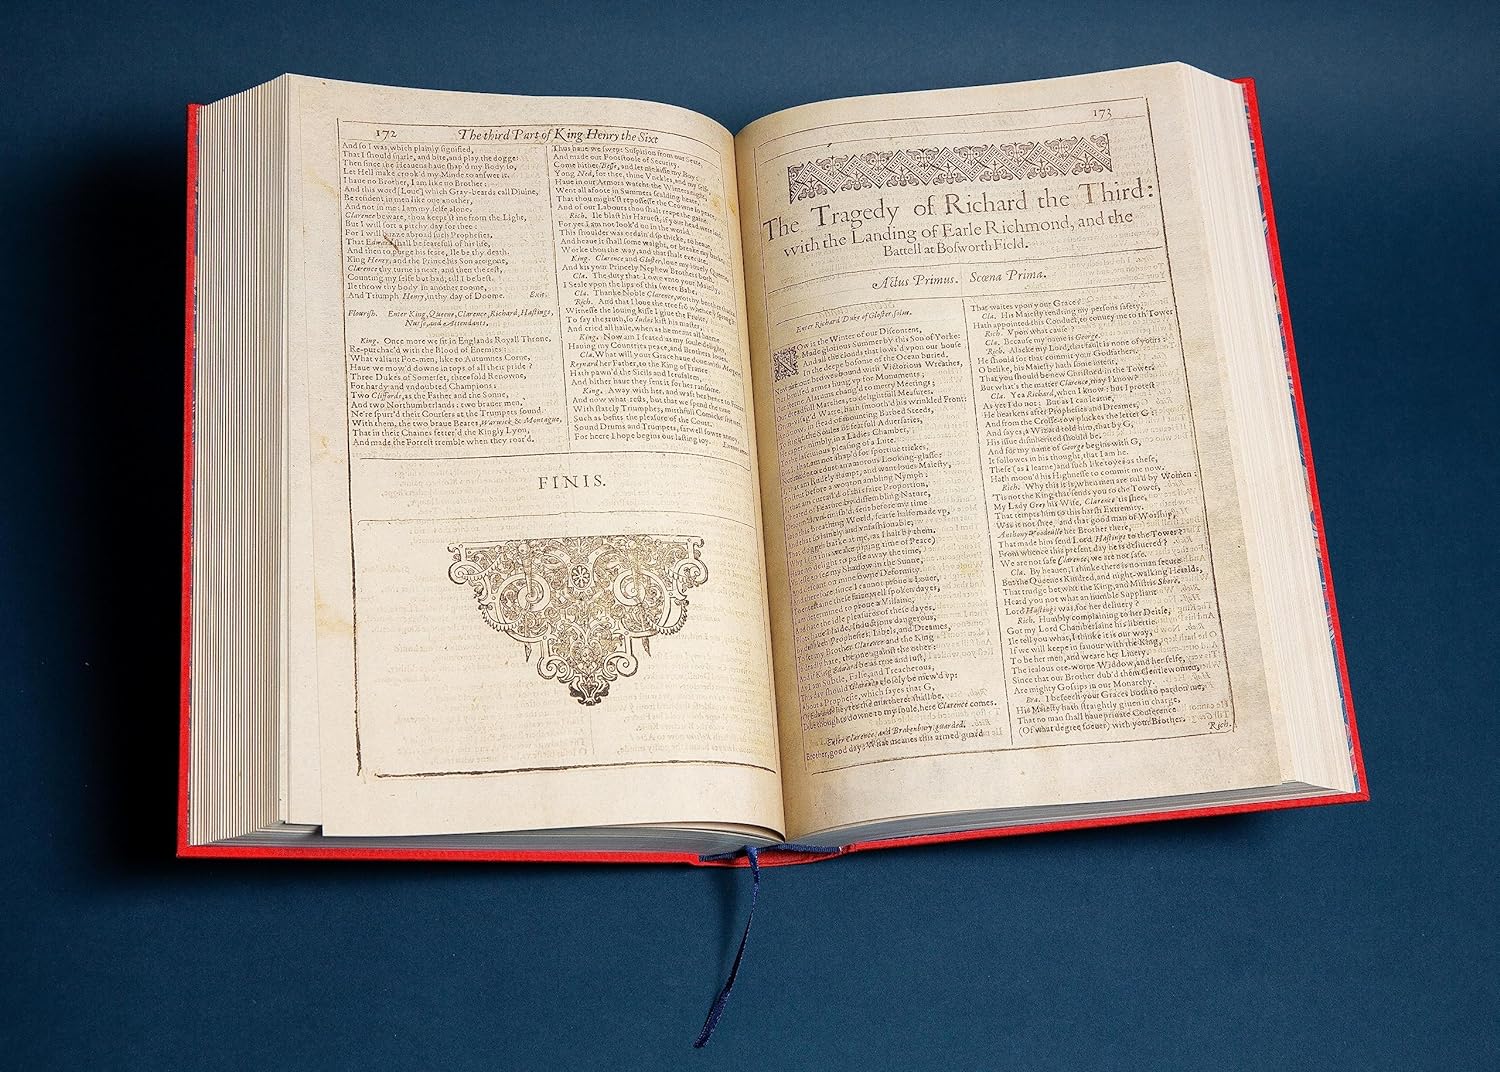 172
The third Part of King Henry the Sixt
And so I was, which plainly signified,
That I should snarle, and bite, and play the dogge:
Then since the Heauens haue shap'd my Body so,
Let Hell make crook'd my Minde to answer it.
I haue no Brother, I am like no Brother:
And this word [Loue] which Gray-beards call Diuine,
Be resident in men like one another,
And not in me: I am my selfe alone.
Clarence beware, thou keept'st me from the Light,
But I will sort a pitchy day for thee:
For I will buzze abroad such Prophesies,
That Edward shall be fearefull of his life,
And then to purge his feare, Ile be thy death.
King Henry, and the Prince his Son are gone,
Clarence thy turne is next, and then the rest,
Counting my selfe but bad, till I be best.
Ile throw thy body in another roome,
And Triumph Henry, in thy day of Doome. Exit.
Flourish. Enter King, Queene, Clarence, Richard, Hastings,
Nurse, and Attendants.
King. Once more we sit in Englands Royall Throne,
Re-purchac'd with the Blood of Enemies:
What valiant Foe-men, like to Autumnes Corne,
Haue we mow'd downe in tops of all their pride?
Three Dukes of Somerset, threefold Renowne,
For hardy and vndoubted Champions:
Two Cliffords, as the Father and the Sonne,
And two Northumberlands: two brauer men,
Ne're spurr'd their Coursers at the Trumpets sound.
With them, the two braue Beares, Warwick & Montague,
That in their Chaines fetter'd the Kingly Lyon,
And made the Forrest tremble when they roar'd.
Thus haue we swept Suspition from our Seate,
And made our Footstoole of Security.
Come hither Besse, and let me kisse my Boy:
Yong Ned, for thee, thine Vnckles, and my selfe,
Haue in our Armors watcht the Winters night,
Went all afoote in Summers scalding heate,
That thou might'st repossesse the Crowne in peace,
And of our Labours thou shalt reape the gaine.
Rich. Ile blast his Haruest, if your head were laid,
For yet I am not look'd on in the world.
This shoulder was ordain'd so thicke, to heaue,
And heaue it shall some waight, or breake my backe,
Worke thou the way, and that shalt execute.
King. Clarence and Gloster, loue my louely Queene,
And kis your Princely Nephew Brothers both.
Cla. The duty that I owe vnto your Maiesty,
I Seale vpon the lips of this sweet Babe.
Cla. Thanke Noble Clarence, worthy brother thanks.
Rich. And that I loue the tree frõ whence ȳ sprang'st:
Witnesse the louing kisse I giue the Fruite,
To say the truth, so Iudas kist his master,
And cried all haile, when as he meant all harme.
King. Now am I seated as my soule delights,
Hauing my Countries peace, and Brothers loues.
Cla. What will your Grace haue done with Margaret,
Reynard her Father, to the King of France
Hath pawn'd the Sicils and Ierusalem,
And hither haue they sent it for her ransome.
King. Away with her, and waft her hence to France:
And now what rests, but that we spend the time
With stately Triumphes, mirthfull Comicke shewes,
Such as befits the pleasure of the Court.
Sound Drums and Trumpets, farwell sowre annoy,
For heere I hope begins our lasting ioy. Exeunt omnes
FINIS.
173
The Tragedy of Richard the Third:
with the Landing of Earle Richmond, and the
Battell at Bosworth Field.
Actus Primus. Scœna Prima.
Enter Richard Duke of Gloster, solus.
Now is the Winter of our Discontent,
Made glorious Summer by this Son of Yorke:
And all the clouds that lowr'd vpon our house
In the deepe bosome of the Ocean buried.
our browes bound with Victorious Wreathes,
bruised armes hung vp for Monuments;
Alarums chang'd to merry Meetings;
dreadfull Marches, to delightfull Measures.
Warre, hath smooth'd his wrinkled Front:
in stead of mounting Barbed Steeds,
the Soules of fearfull Aduersaries,
nimbly in a Ladies Chamber,
lasciuious pleasing of a Lute.
that am not shap'd for sportiue trickes,
to court an amorous Looking-glasse:
am Rudely stampt, and want loues Maiesty,
before a wonton ambling Nymph:
that am curtail'd of this faire Proportion,
of Feature by dissembling Nature,
vnfinish'd, sent before my time
this breathing World, scarse halfe made vp,
so lamely and vnfashionable,
dogges barke at me, as I halt by them.
in this weake piping time of Peace)
no delight to passe away the time,
to see my Shadow in the Sunne,
descant on mine owne Deformity.
therefore, since I cannot proue a Louer,
entertaine these faire well spoken dayes,
am determined to proue a Villaine,
hate the idle pleasures of these dayes.
haue I laide, Inductions dangerous,
drunken Prophesies, Libels, and Dreames,
set my Brother Clarence and the King
deadly hate, the one against the other:
if King Edward be as true and iust,
I am Subtle, False, and Treacherous,
This day should Clarence closely be mew'd vp:
About a Prophesie, which sayes that G,
Of Edwards heyres the murtherer shall be.
Diue thoughts downe to my soule, here Clarence comes.
Enter Clarence, and Brakenbury, guarded.
Brother, good day: What meanes this armed guard
That waites vpon your Grace?
Cla. His Maiesty tendring my persons safety,
Hath appointed this Conduct, to conuey me to th'Tower
Rich. Vpon what cause?
Cla. Because my name is George.
Rich. Alacke my Lord, that fault is none of yours:
He should for that commit your Godfathers.
O belike, his Maiesty hath some intent,
That you should be new Christned in the Tower.
But what's the matter Clarence, may I know?
Cla. Yea Richard, when I know: but I protest
As yet I do not: But as I can learne,
He hearkens after Prophesies and Dreames,
And from the Crosse-row pluckes the letter G:
And sayes, a Wizard told him, that by G,
His issue disinherited should be.
And for my name of George begins with G,
It followes in his thought, that I am he.
These (as I learne) and such like toyes as these,
Hath moou'd his Highnesse to commit me now.
Rich. Why this it is, when men are rul'd by Women:
'Tis not the King that sends you to the Tower,
My Lady Grey his Wife, Clarence 'tis shee,
That tempts him to this harsh Extremity.
Was it not shee, and that good man of Worship,
Anthony Woodeulle her Brother there,
That made him send Lord Hastings to the Tower?
From whence this present day he is deliuered?
We are not safe Clarence, we are not safe.
Cla. By heauen, I thinke there is no man secure
But the Queenes Kindred, and night-walking Heralds,
That trudge betwixt the King, and Mistris Shore.
Heard you not what an humble Suppliant
Lord Hastings was, for her deliuery?
Rich. Humbly complaining to her Deitie,
Got my Lord Chamberlaine his libertie.
Ile tell you what, I thinke it is our way,
If we will keepe in fauour with the King,
To be her men, and weare her Liuery.
The iealous ore-worne Widdow, and her selfe,
Since that our Brother dub'd them Gentlewomen,
Are mighty Gossips in our Monarchy.
Bra. I beseech your Graces both to pardon me,
His Maiesty hath straightly giuen in charge,
That no man shall haue priuate Conference
(Of what degree soeuer) with your Brother.
Rich.